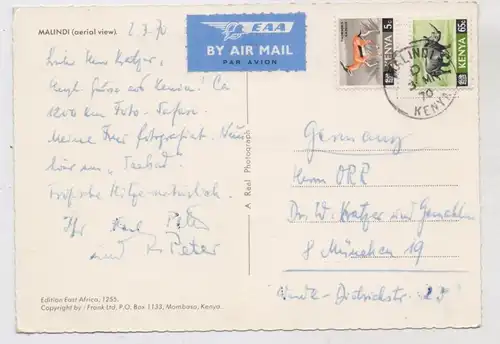 MALINDI (aerial view).
2.3.70
EAA
BY AIR MAIL
PAR AVION
5c
KENYA
65c
KENYA
MALINDI
70
KENYA
Herzl. Grüsse aus Kenia! Ca
1200 km Foto-Safari.
Meine Frau fotografiert.
Tropische Hitze natürlich.
Ihr
und
Peter
A Real Photograph
Germany
Herrn ORR
Dr. W. Kratzer und Gemahlin
8 München 19
Edition East Africa, 1255.
Copyright by: Frank Ltd. P.O. Box 1133, Mombasa, Kenya.